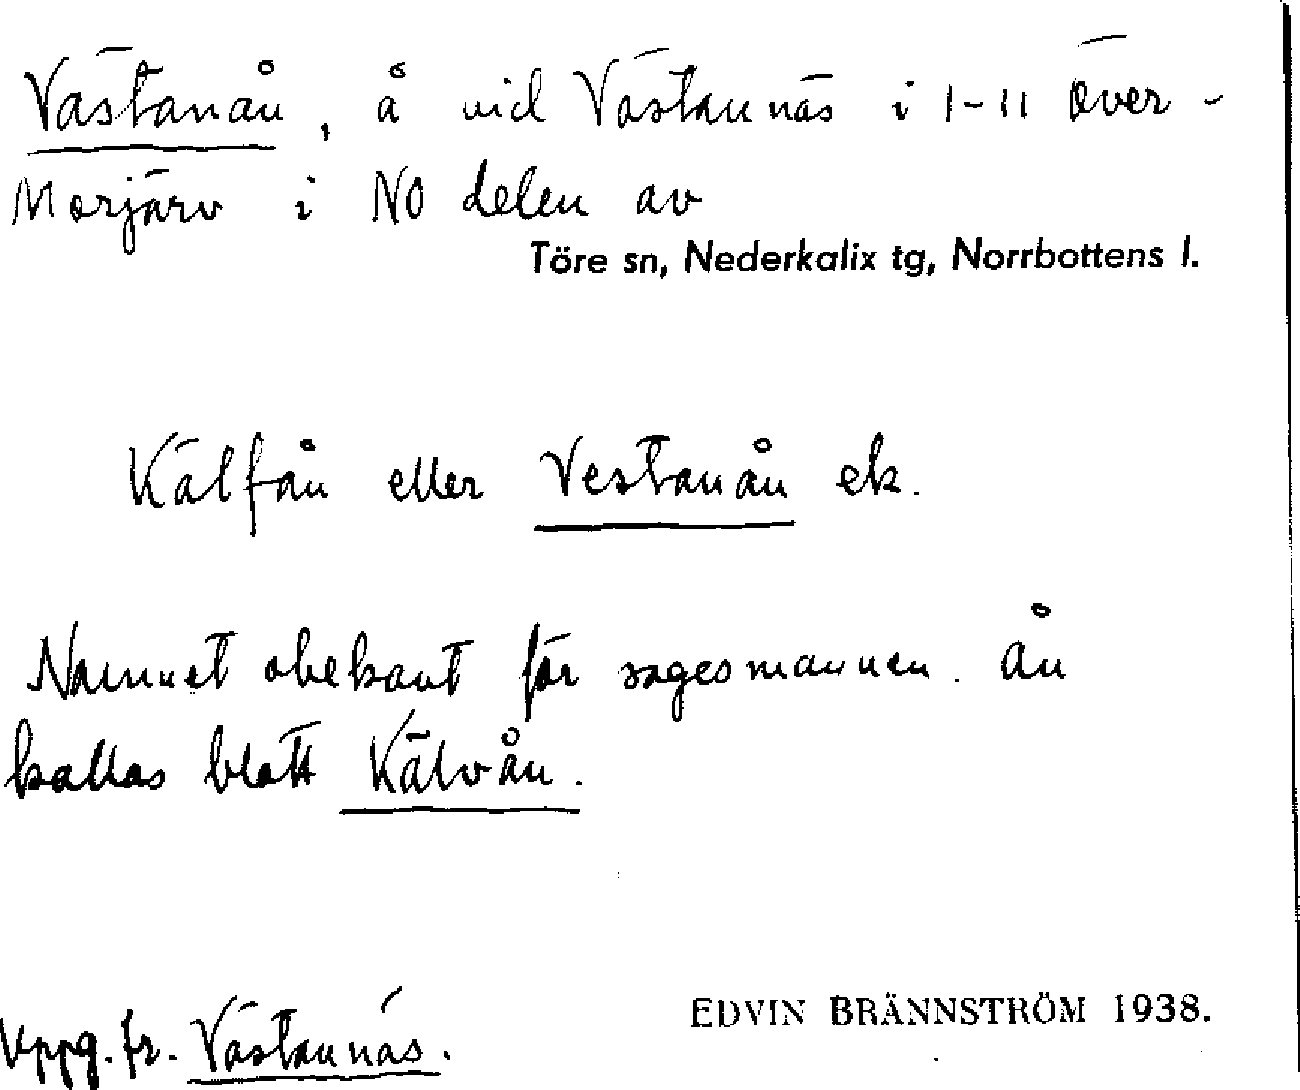 Västanån, å vid Västannäs i 1-11 Över-
Morjärv i NO delen av
Töre sn, Nederkalix tg, Norrbottens l.
Kälfån eller Vestanån ek.
Namnet obekant för sagesmannen. Ån
kallas blott Kälvån.
Uppg. fr. Västannäs.
EDVIN BRÄNNSTRÖM 1938.